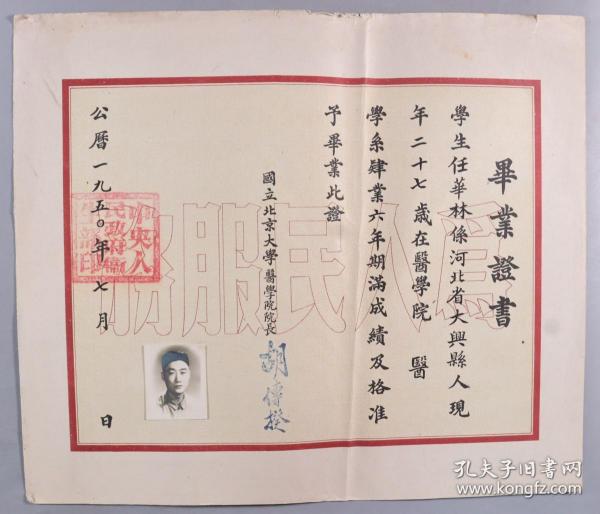 畢業證書
學生任華林係河北省大興縣人現
年二十七歲在醫學院 醫
學系肄業六年期滿成績及格准
予畢業此證
國立北京大學醫學院院長
胡傳揆
公曆一九五〇年七月 日
為人民服務
中央人
民政府衛
生部印
孔夫子旧书网
www.kongfz.com